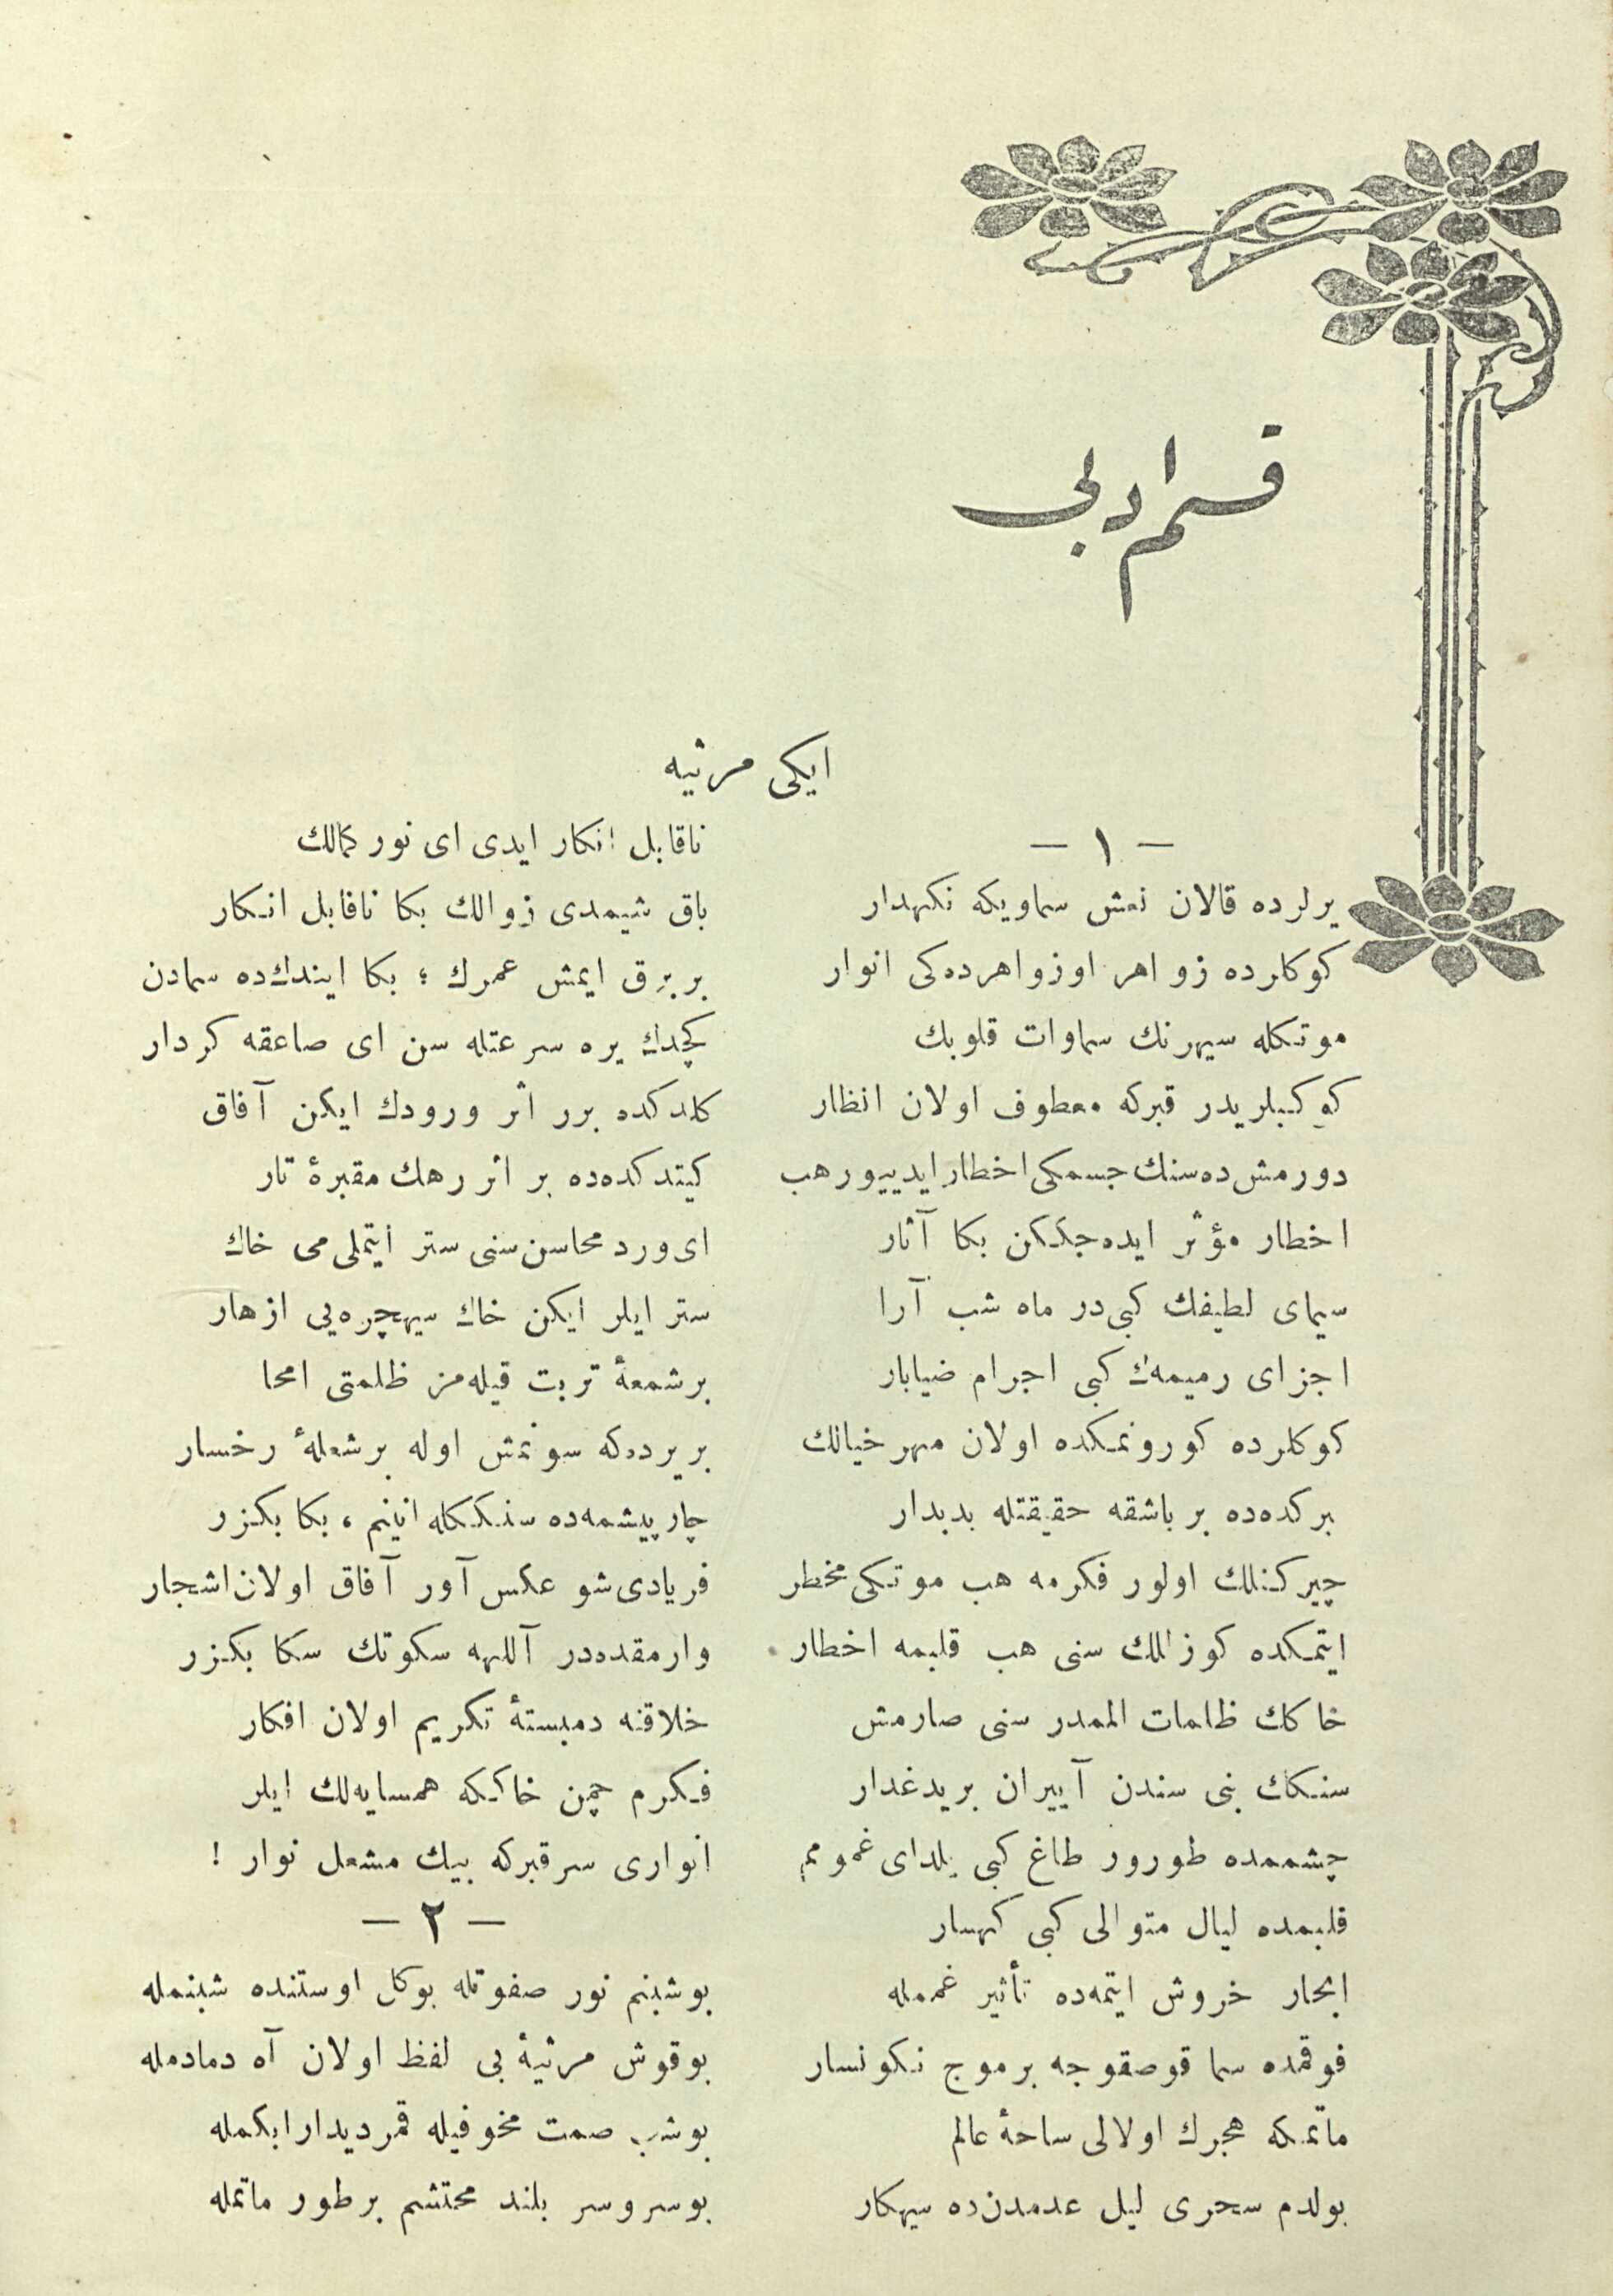 قسم ادبی
ایکی مرثیه
— ١ —
یرلرده قالان نعش سماویكه نکهدار
کوکلرده زواهر اوزواهرده‌کی انوار
موتکله سیهرنك سماوات قلوبك
کوکبلریدر قبرکه معطوف اولان انظار
دورمش ده سنك جسمکی اخطار ایدییور هب
اخطار مؤثر ایده‌جککن بکا آثار
سیمای لطیفك کبی در ماه شب آرا
اجزای رمیمه‌ك کبی اجرام ضیابار
کوکلرده کورونمکده اولان مهر خیالك
برکده‌ده بر باشقه حقیقتله بدیدار
چیرکنلك اولور فکرمه هب موتکی مخطر
ایتمکده کوزللك سنی هب قلبمه اخطار
خاکك ظلمات المدر سنی صارمش
سنکك بنی سندن آییران برید غدار
چشممده طورور طاغ کبی یلدای غمومم
قلبمده لیال متوالی کبی کهسار
ابحار خروش ایتمه‌ده تأثیر غممله
فوقمده سما قوصقوجه برموج نکونسار
ماتمکه هجرك اولالی ساحهٔ عالم
بولدم سحری لیل عدمدن ده سیهکار
ناقابل انکار ایدی ای نور کمالك
باق شیمدی زوالك بکا ناقابل انکار
بر برق ایمش عمرك ؛ بکا ایندك ده سمادن
کچدك یره سرعتله سن ای صاعقه کردار
کلدکده برر اثر ورودك ایکن آفاق
کیتدکده‌ده بر اثر رهك مقبرهٔ تار
ای ورد محاسن سنی ستر ایتملی می خاك
ستر ایلر ایکن خاك سیهچره‌یی ازهار
برشمعهٔ تربت قیله‌مز ظلمتی امحا
بر یرده‌که سونمش اوله برشعلهٔ رخسار
چارپیشمه‌ده سنککله انینم ، بکا بکزر
فریادی شو عکس آور آفاق اولان اشجار
وارمقده‌در آللهه سکوتك سکا بکزر
خلاقنه دمبستهٔ تکریم اولان افکار
فکرم چمن خاککه همسایه‌لك ایلر
انواری سر قبرکه بیك مشعل نوار !
— ٢ —
بوشبنم نور صفوتله بوکل اوستنده شبنمله
بوقوش مرثیهٔ بی لفظ اولان آه دمادمله
بوشب صمت مخوفیله قمردیدار ابکمله
بوسروسر بلند محتشم برطور ماتمله